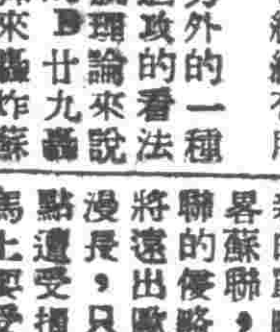 外的一種
攻的看法
理論來說
B廿九轟
來轟炸蘇
畧蘇聯，
聯的侵略
將遠出歐
漫長，只
點遭受損
馬上要受